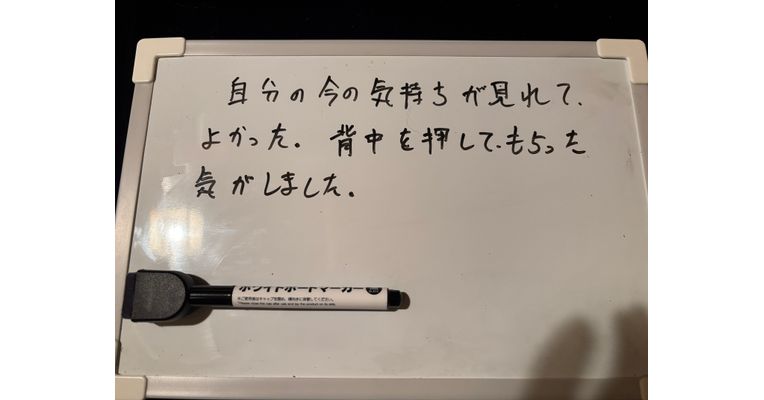 自分の今の気持ちが見れて、
よかった。背中を押してもらった
気がしました。
ホワイトボードマーカー